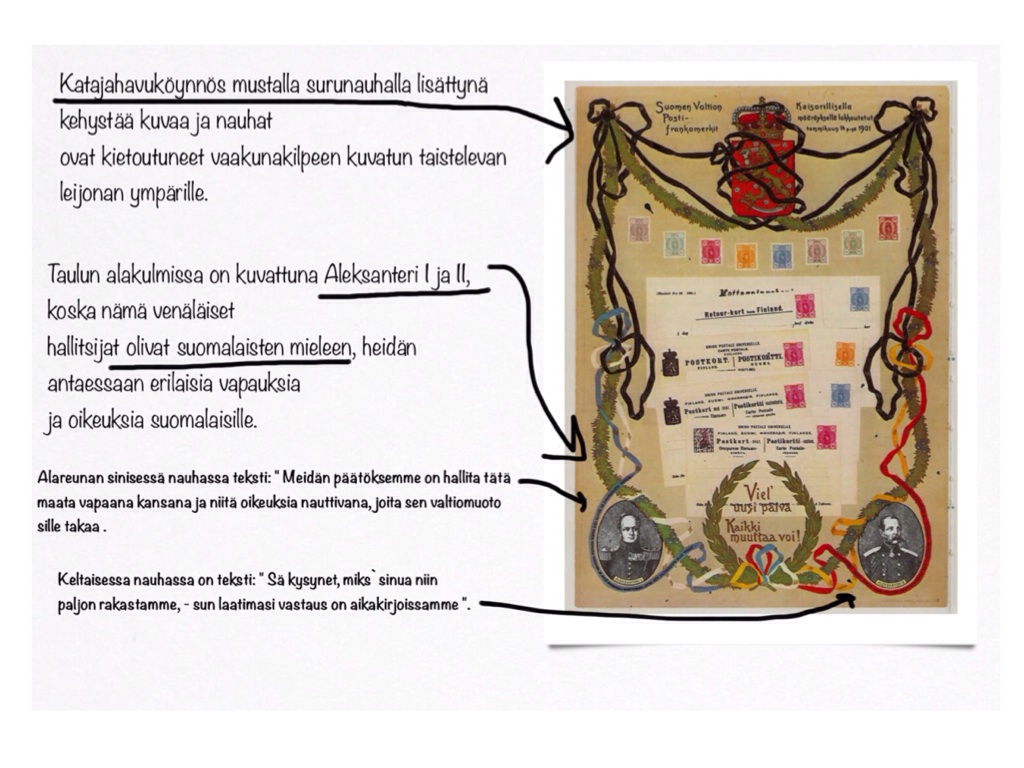 Katajahavuköynnös mustalla surunauhalla lisättynä
kehystää kuvaa ja nauhat
ovat kietoutuneet vaakunakilpeen kuvatun taistelevan
leijonan ympärille.
Taulun alakulmissa on kuvattuna Aleksanteri I ja II,
koska nämä venäläiset
hallitsijat olivat suomalaisten mieleen, heidän
antaessaan erilaisia vapauksia
ja oikeuksia suomalaisille.
Alareunan sinisessä nauhassa teksti: " Meidän päätöksemme on hallita tätä
maata vapaana kansana ja niitä oikeuksia nauttivana, joita sen valtiomuoto
sille takaa .
Keltaisessa nauhassa on teksti: " Sä kysynet, miks`sinua niin
paljon rakastamme, - sun laatimasi vastaus on aikakirjoissamme ".
Suomen Valtion
Posti-
frankomerkit
Keisarillisella
määräyksellä lakkautetut
tammikuun 14 p:nä 1901
Retour-kort från Finland.
UNION POSTALE UNIVERSELLE.
POSTKORT. POSTIKORTTI.
UNION POSTALE UNIVERSELLE.
Postikortti
Carte Postale
UNION POSTALE UNIVERSELLE.
Postikortti
Carte Postale
Viel'
uusi päivä
Kaikki
muuttaa voi!